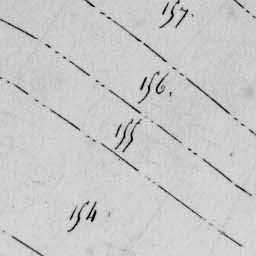 157.
156.
155
154.